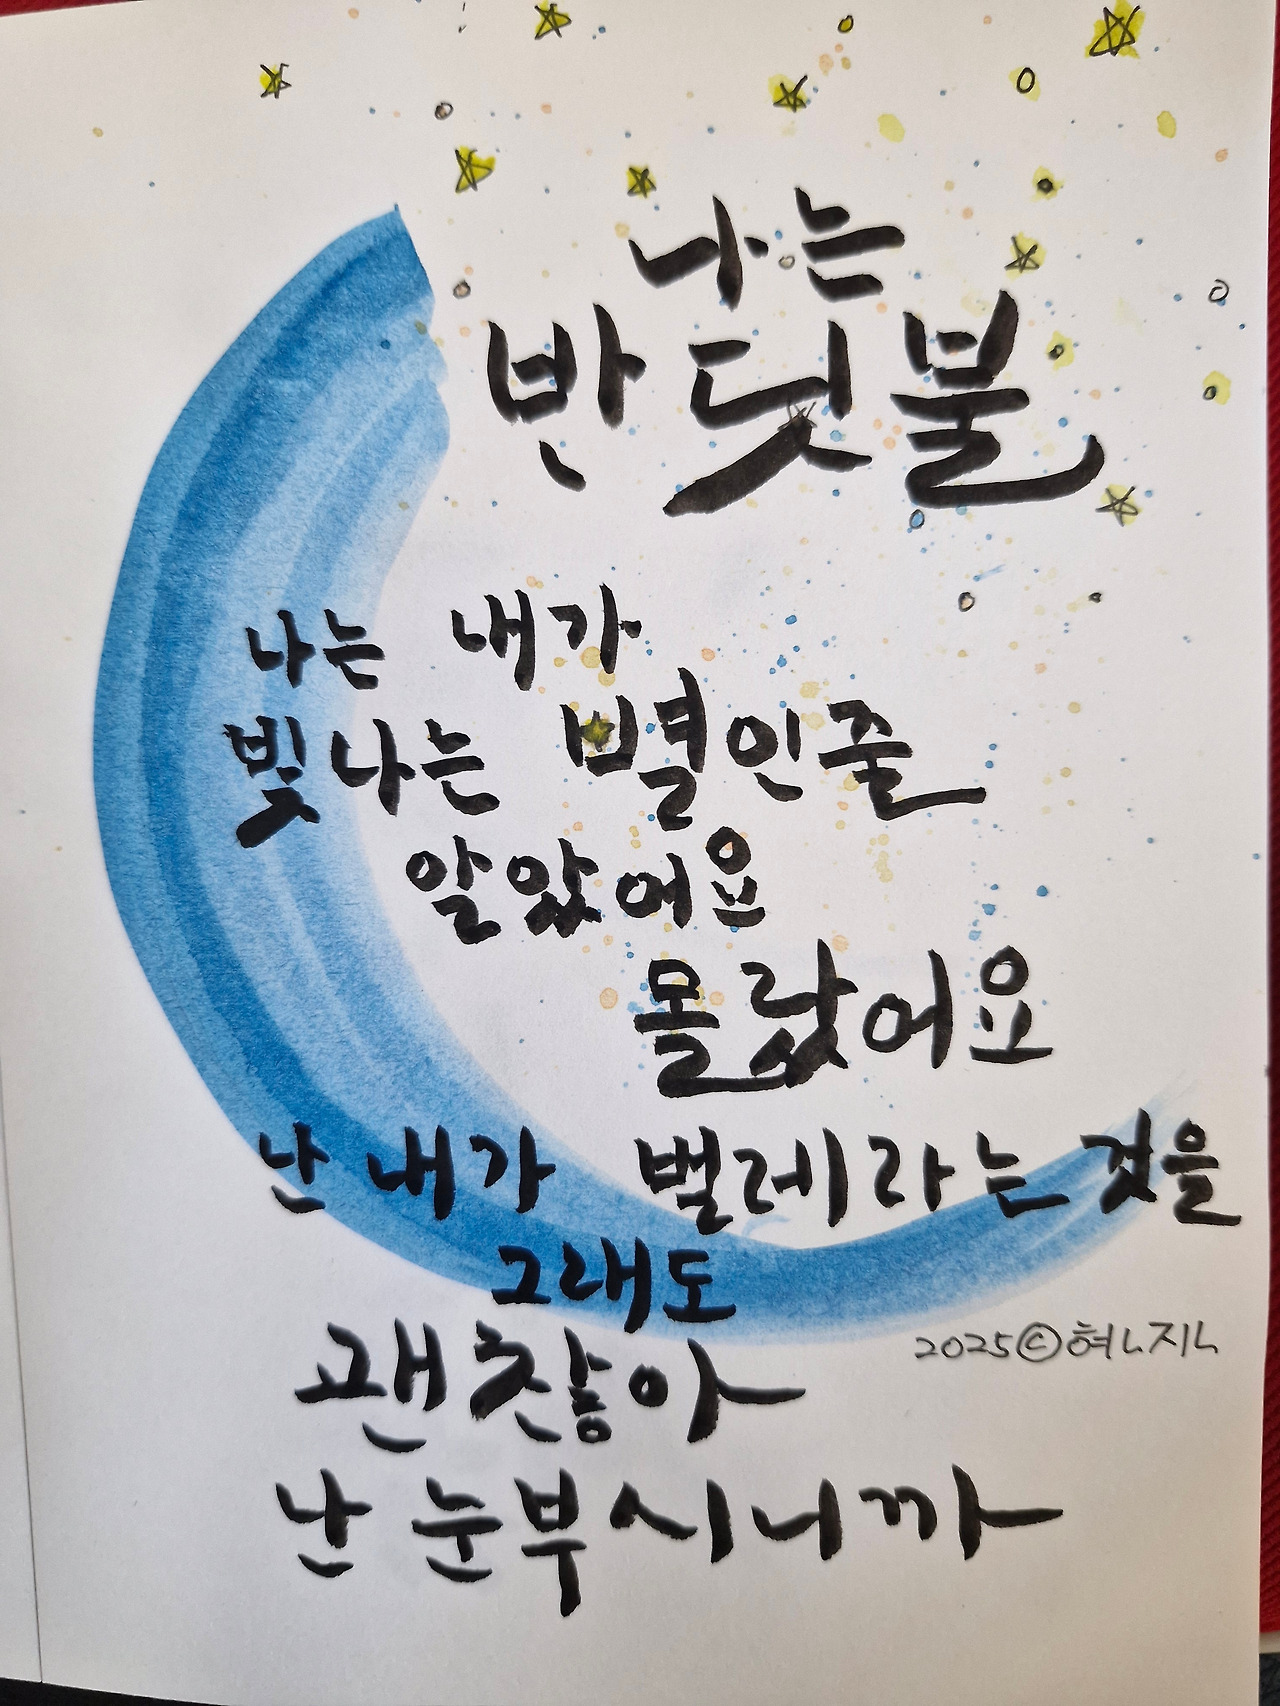 나는
반딧불
나는 내가
빛나는 별인줄
알았어요
몰랐어요
난 내가 벌레라는 것을
그래도
괜찮아
난 눈부시니까
2025©현진